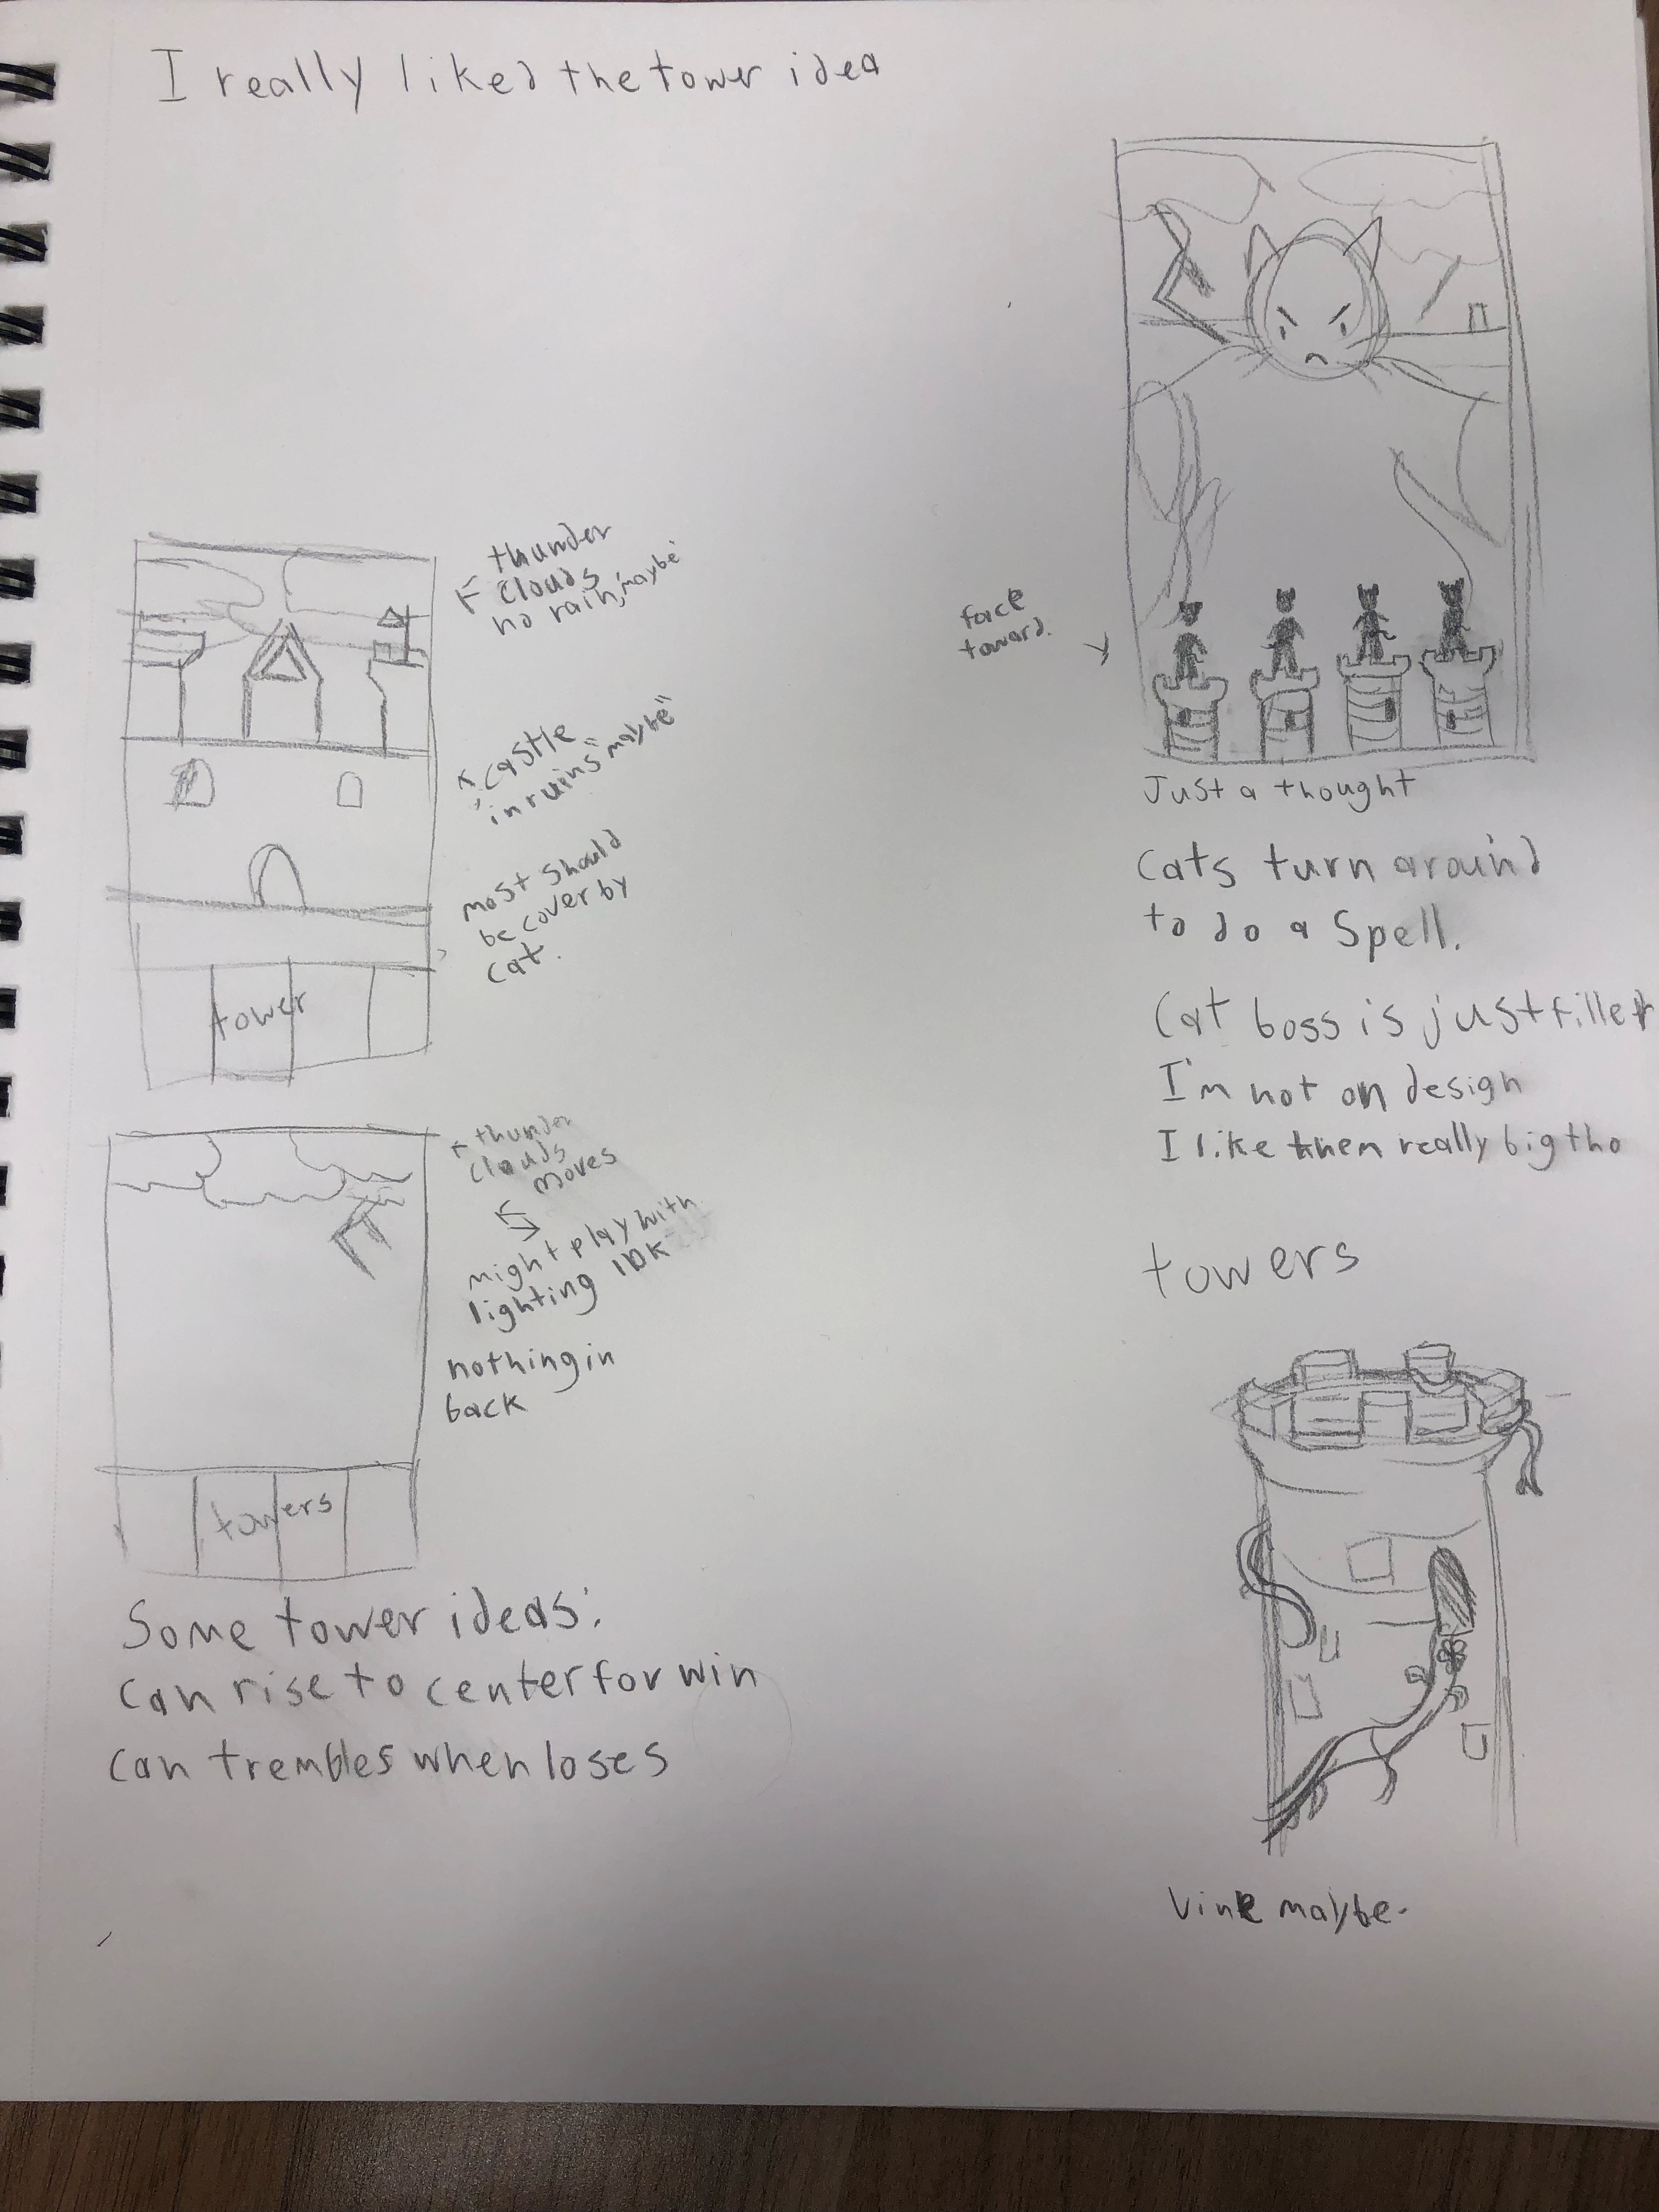 I really liked the tower idea
thunder
clouds
no rain, "maybe"
"castle
in ruins" "maybe"
most should
be cover by
cat.
tower
thunder
clouds
moves
might play with
lighting IDK
nothing in
back
towers
Some tower ideas:
can rise to center for win
can trembles when loses
face
toward.
Just a thought
Cats turn around
to do a Spell.
Cat boss is just filler
I'm not on design
I like them really big tho
towers
Vine maybe.